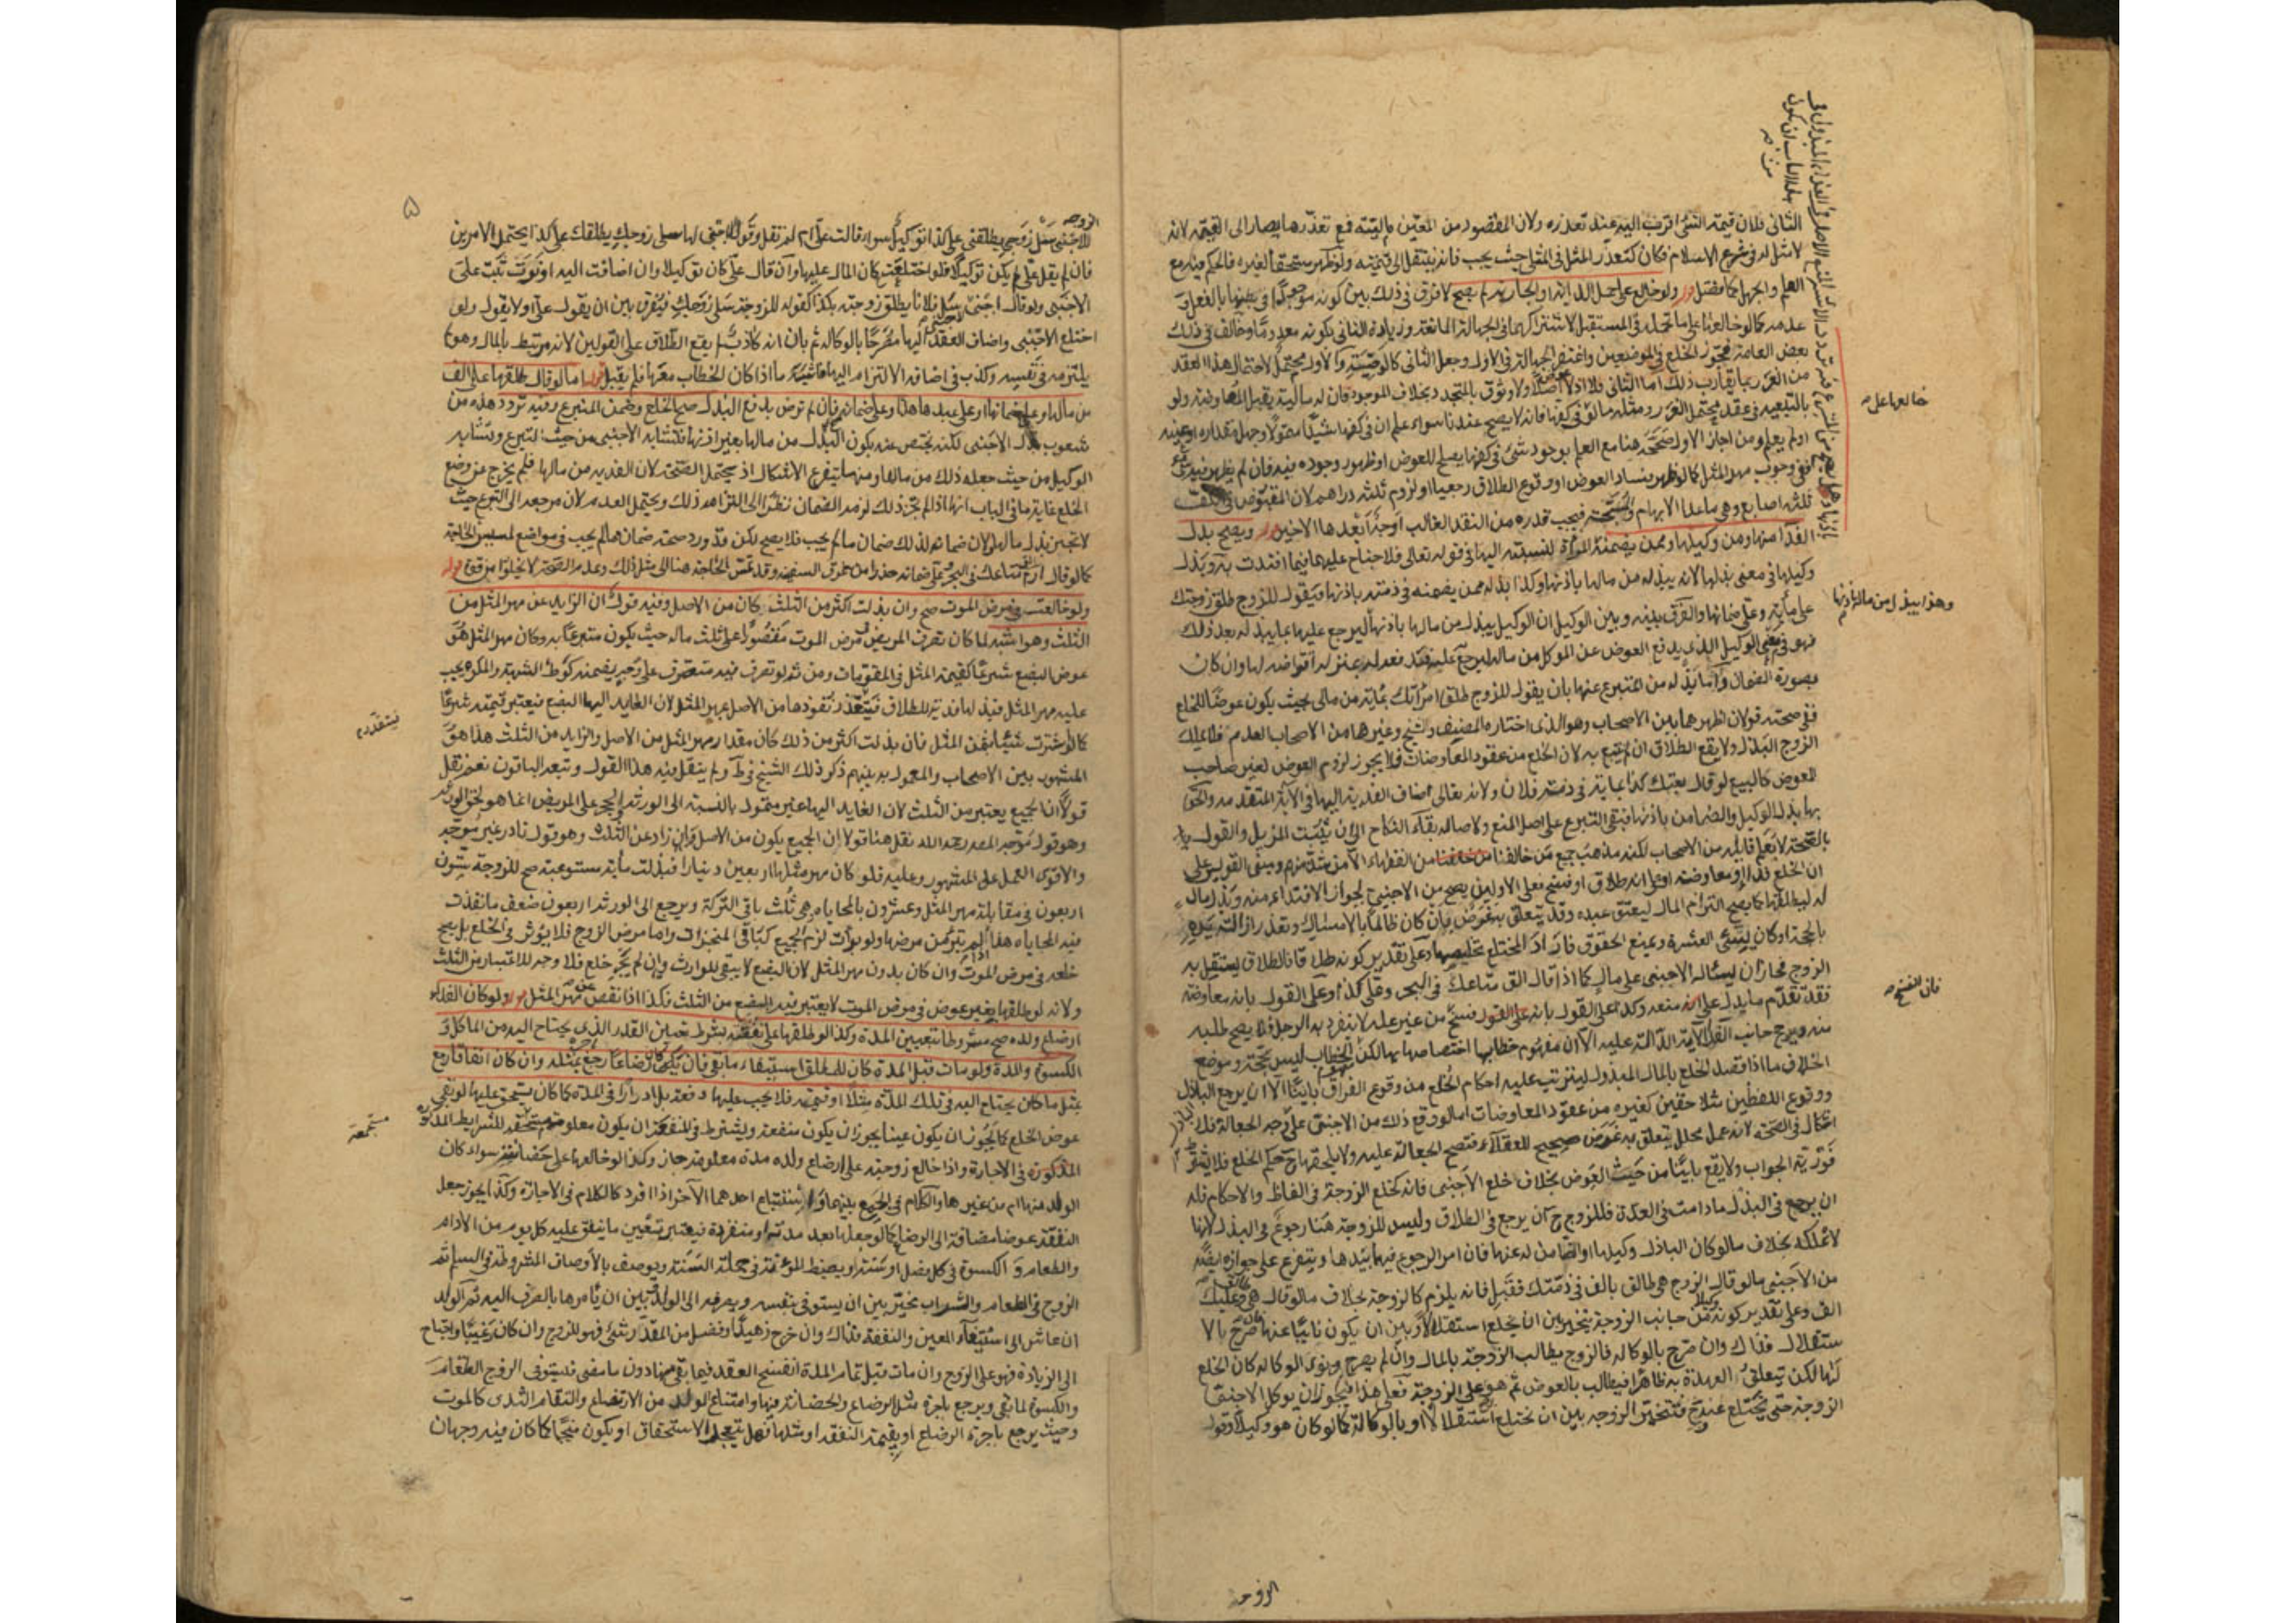 الثانى فلان قيمة الشئ اقرب اليه عند تعذره ولان المقصود من المعين ماليته فمع تعذرها يصار الى القيمة لانه
لا مثل له فى شرع الاسلام فكان كتعذر المثل فى المثلى حيث يجب فانه ينتقل الى قيمته ولو ظهر مستحقا لغيره فالحكم فيه مع
العلم والجهل كما فصل قوله ولو خالع على حمل الدابة او الجارية لم يصح لا فرق فى ذلك بين كونه موجودا فى بالفعل و
عدمه كما لو خالعها على ما تحمله فى المستقبل لاشتراكهما فى الجهالة المانعة وزيادة الثانى بكونه معدوما وخالف فى ذلك
بعض العامة فجوز الخلع فى الموضعين واغتفر الجهالة فى الاول وجعل الثانى كالوصية والاول محتمل لاحتمال هذا العقد
من الغرر ما يقارب ذلك اما الثانى فلا اذ لا عوض اصلا ولا وثوق بالمتجدد بخلاف الموجود فان له مالية يقبل المعاوضة ولو
بالتبعية فى عقد محتمل الغرر ومثله ما لو فى كفها فانه لا يصح عندنا سواء علم ان فى كفها شيئا متمولا وجهل مقداره او عينه
او لم يعلم ومن اجاز الاول صححه هنا مع العلم بوجود شئ فى كفها يصلح للعوض او ظهور وجوده فيه فان لم يظهر فيه شئ
ففى وجوب مهر المثل كما لو ظهر فساد العوض او وقوع الطلاق رجعيا او لزوم ثلثة دراهم لان المقبوض فى الكف
ثلثة اصابع وهى ما عدا الابهام والسبحة فيجب قدره من النقد الغالب اوجه ابعدها الاخير قوله ويصح بذل
الفداء منها ومن وكيلها وممن يضمنه المرأة لنسبته اليها فى قوله تعالى فلا جناح عليهما فيما افتدت به وبذل
وكيلها فى معنى بذلها لانه يبذله من مالها باذنها وكذا بذله ممن يضمنه فى ذمته باذنها فيقول للزوج طلق زوجتك
على مأية وعلى ضمانها والفرق بينه وبين الوكيل ان الوكيل يبذل من مالها باذنها ليرجع عليها بما يبذله بعد ذلك
فهو فى معنى الوكيل الذى يدفع العوض عن الموكل من ماله ليرجع عليه فقد فعد له بمنزلة اقراضه لها وان كان
بصورة الضمان واما بذله من المتبرع عنها بان يقول للزوج طلق امرأتك بمأية من مالى بحيث يكون عوضا للخلع
ففى صحته قولان اظهرهما بين الاصحاب وهو الذى اختاره المصنف والشيخ وغيرهما من الاصحاب العدم فلا يملك
الزوج البذل ولا يقع الطلاق ان لم يتبع به لان الخلع من عقود المعاوضات فلا يجوز لزوم العوض لغير صاحب
العوض كالبيع لو قال بعتك كذا بمأية فى ذمة فلان ولانه تعالى اضاف الفدية اليها فى الآية المتقدمة والحق
بها بذل الوكيل والضامن باذنها فيبقى التبرع على اصل المنع ولاصالة بقاء النكاح الى ان يثبت المزيل والقول
بالصحة لا نعلم قائله من الاصحاب لكنه مذهب جميع من خالفنا من الفقهاء الا من شذ منهم ومبنى القولين على
ان الخلع فداء او معاوضة او على انه طلاق او فسخ فعلى الاولين يصح من الاجنبى لجواز الافتداء منه وبذل مال
له ليطلقها كما يصح التزام المال ليعتق عبده وقد يتعلق به غرض بان كان ظالما بالامساك وتعذر ازالة يده
بالحجة او كان يسئ العشرة ويمنع الحقوق فاراد المختلع تخليصها وعلى تقدير كونه طلاقا فالطلاق يستقل به
الزوج فجاز ان يسئله الاجنبى على مال كما اذا قال الق متاعك فى البحر وعلى كذا وعلى القول بانه معاوضة
فقد تقدم ما يدل على انه منعه وكذا على القول بانه فسخ من غير علة لا ينفرد به الرجل فلا يصح طلبه
منه ويرجح جانب الفداء الآية الدالة عليه الا ان مفهوم خطابها اختصاصها بها لكن الخطاب ليس بحجة وموضع
الخلاف ما اذا قصد الخلع بالمال المبذول ليترتب عليه احكام الخلع من وقوع الفراق باينا الا ان يرجع الباذل
ووقوع اللفظين متلاحقين كغيره من عقود المعاوضات اما لو وقع ذلك من الاجنبى على وجه الجعالة فلا
اشكال فى الصحة لانه عمل محلل يتعلق به غرض صحيح للعقلاء فتصح الجعالة عليه ولا يلحقها ح حكم الخلع فلا يشترط
فورية الجواب ولا يقع باينا من حيث العوض بخلاف خلع الاجنبى فانه كخلع الزوجة فى الفاظ والاحكام فله
ان يرجع فى البذل ما دامت فى العدة فللزوج ح ان يرجع فى الطلاق وليس للزوجة هنا رجوع فى البذل لانها
لا تملكه بخلاف ما لو كان الباذل وكيلها او الضامن له عنها فان امر الرجوع فيهما بيدها ويتفرع على جوازه ايضا
من الاجنبى ما لو قال الزوج هى طالق بالف فى ذمتك فقبل فانه يلزم كالزوجة بخلاف ما لو قال هى طالق وعليك
الف وعلى تقدير كونه وكيلا من جانب الزوجة يتخير بين ان يخلع استقلالا وبين ان يكون نايبا عنها فان صرح بالا
ستقلال فذاك وان صرح بالوكالة فالزوج يطالب الزوجة بالمال وان لم يصرح ونوى الوكالة كان الخلع
لها لكن تتعلق العهدة به ظاهرا فيطالب بالعوض ثم هو على الزوجة فعلى هذا فيجوز ان يوكل الاجنبى
الزوجة حتى يختلع عنه ح فتتخير الزوجة بين ان تختلع استقلالا او بالوكالة كما لو كان هو وكيلا وقول
خالعها على صح
وهذا يبذل من ماله باذنها
فان الفسخ صح
الزوجه
۵
الزوجة
للاجنبى سل زوجى يطلقنى على كذا توكيل سواء قالت على ام لم تقل وقول الاجنبى لها سلى زوجك يطلقك على كذا يحتمل الامرين
فان لم يقل على لم يكن توكيلا فلو اختلعت كان المال عليها وان قال على كان توكيلا وان اضافت اليه او نوت ثبت على
الاجنبى ولو قال اجنبى سل فلانا يطلق زوجته بكذا كقوله للزوجة سلى زوجك فيفرق بين ان يقول على او لا يقول ولو
اختلع الاجنبى واضاف العقد اليها مصرحا بالوكالة ثم بان انه كاذب لم يقع الطلاق على القولين لانه مرتبط بالمال وهو لم
يلتزمه فى نفسه وكذب فى اضافة الالتزام اليها فاشبه ما اذا كان الخطاب معها فلم يقبل قوله اما لو قال طلقها على الف
من مالها وعلى ضمانها او على عبدها هذا وعلى ضمانه فان لم ترض بدفع البذل صح الخلع وضمن المتبرع وفيه تردد هذه من
شعوب بذل الاجنبى لكنه يختص عنه بكون البذل من مالها بغير اذنها فتشابه الاجنبى من حيث التبرع وتشابه
الوكيل من حيث جعله ذلك من مالها ومنهما يتفرع الاشكال اذ يحتمل الصحة لان الفدية من مالها فلم يخرج عن وضع
الخلع غاية ما فى الباب انها اذا لم تجز ذلك لزمه الضمان نظرا الى التزامه ذلك ويحتمل العدم لان مرجعه الى التبرع حيث
لا تجيز بذل مالها ولان ضمانه لذلك ضمان ما لم يجب فلا يصح لكن قد ورد صحة ضمان ما لم يجب فى مواضع لمسيس الحاجة
كما لو قال ارم متاعك فى البحر وعلى ضمانه حذرا من غرق السفينة وقد تمس الحاجة هنا الى مثل ذلك وعدم الصحة لا يخلوا من قوة قوله
ولو خالعت فى مرض الموت صح وان بذلت اكثر من الثلث كان من الاصل وفيه قول ان الزايد عن مهر المثل من
الثلث وهو اشبه لما كان تصرف المريض فى مرض الموت مقصورا على ثلث ماله حيث يكون متبرعا به وكان مهر المثل هو
عوض البضع شرعا كقيمة المثل فى المقومات ومن ثم لو تصرف فيه متصرف على وجه يضمنه كوطى الشبهة والمكره يجب
عليه مهر المثل فبذلها فدية للطلاق فيتقدر نفوذها من الاصل بمهر المثل لان العايد اليها البضع فيعتبر قيمته شرعا
كما لو اشترت شيئا بثمن المثل فان بذلت اكثر من ذلك كان مقدار مهر المثل من الاصل والزايد من الثلث هذا هو
المشهور بين الاصحاب والمعمول به بينهم ذكر ذلك الشيخ فى ط ولم ينقل فيه هذا القول وتبعه الباقون نعم نقل
قولا ان الجميع يعتبر من الثلث لان العايد اليها غير متمول بالنسبة الى الورثة والحجر على المريض انما هو لحق الورثة
وهو قول موجه المصه رحمه الله نقل هنا قولا ان الجميع يكون من الاصل وان زاد عن الثلث وهو قول نادر غير موجه
والاقوى العمل على المشهور وعليه فلو كان مهر مثلها اربعين دينارا فبذلت مأية مستوعبة صح للزوجة ستون
اربعون فى مقابلة مهر المثل وعشرون بالمحاباة هى ثلث باقى التركة ويرجع الى الورثة اربعون ضعف ما نفذت
فيه المحاباة هذا اذا لم تبرء من مرضها ولو برأت لزم الجميع كباقى المنجزات واما مرض الزوج فلا يؤثر فى الخلع بل يصح
خلعه فى مرض الموت وان كان بدون مهر المثل لان البضع لا يبقى للوارث وان لم يجر خلع فلا وجه للاعتبار من الثلث
ولانه لو طلقها بغير عوض فى مرض الموت لا يعتبر فيه البضع من الثلث فكذا اذا نقص عن مهر المثل قوله ولو كان الفداء
ارضاع ولده صح مشروطا بتعيين المدة وكذا لو طلقها على نفقته بشرط تعيين القدر الذى يحتاج اليه من المأكل و
الكسوة والمدة ولو مات قبل المدة كان للمطلق استيفاء ما بقى فان كان رضاعا رجع بمثله وان كان انفاقا رجع
بمثل ما كان يحتاج اليه فى تلك المدة مثلا او قيمة فلا يجب عليها دفعة بل ادرارا فى المدة كما كان يستحق عليها لو بقى
عوض الخلع كما يجوز ان يكون عينا يجوز ان يكون منفعة ويشترط فى المنفعة ان يكون معلومة مستجمعة للشرايط
المذكورة فى الاجارة واذا خالع زوجته على ارضاع ولده مدة معلومة جاز وكذا لو خالعها على حضانته سواء كان
الولد منها ام من غيرها والكلام فى الجمع بينهما واستتباع احدهما الآخر اذا افرد كالكلام فى الاجارة وكذا يجوز جعل
النفقة عوضا مضافة الى الرضاع كما لو جعلها بعد مدته او منفردة فيعتبر تعيين ما ينفق عليه كل يوم من الادام
والطعام و الكسوة فى كل فصل او سنة او يضبط المؤنة فى جملة السنة ويوصف بالاوصاف المشروطة فى السلم ثم
الزوج فى الطعام والشراب مخير بين ان يستوفى بنفسه ويصرفه الى الولد وبين ان يأمرها بالصرف اليه ثم الولد
ان عاش الى استيفاء المعين والنفقة فذاك وان خرج زهيدا وفضل من المقدر شئ فهو للزوج وان كان رغيبا واحتاج
الى الزيادة فهو على الزوج وان مات قبل تمام المدة انفسخ العقد فيما بقى منها دون ما مضى فيستوفى الزوج الطعام
والكسوة لما بقى ويرجع باجرة مثل الرضاع والحضانة فيها وامتناع الولد من الارتضاع والتقام الثدى كالموت
وحيث يرجع باجرة الرضاع او بقيمة النفقة او مثلها فهل يتعجل الاستحقاق او يكون منجما كما كان فيه وجهان
مستجمعة